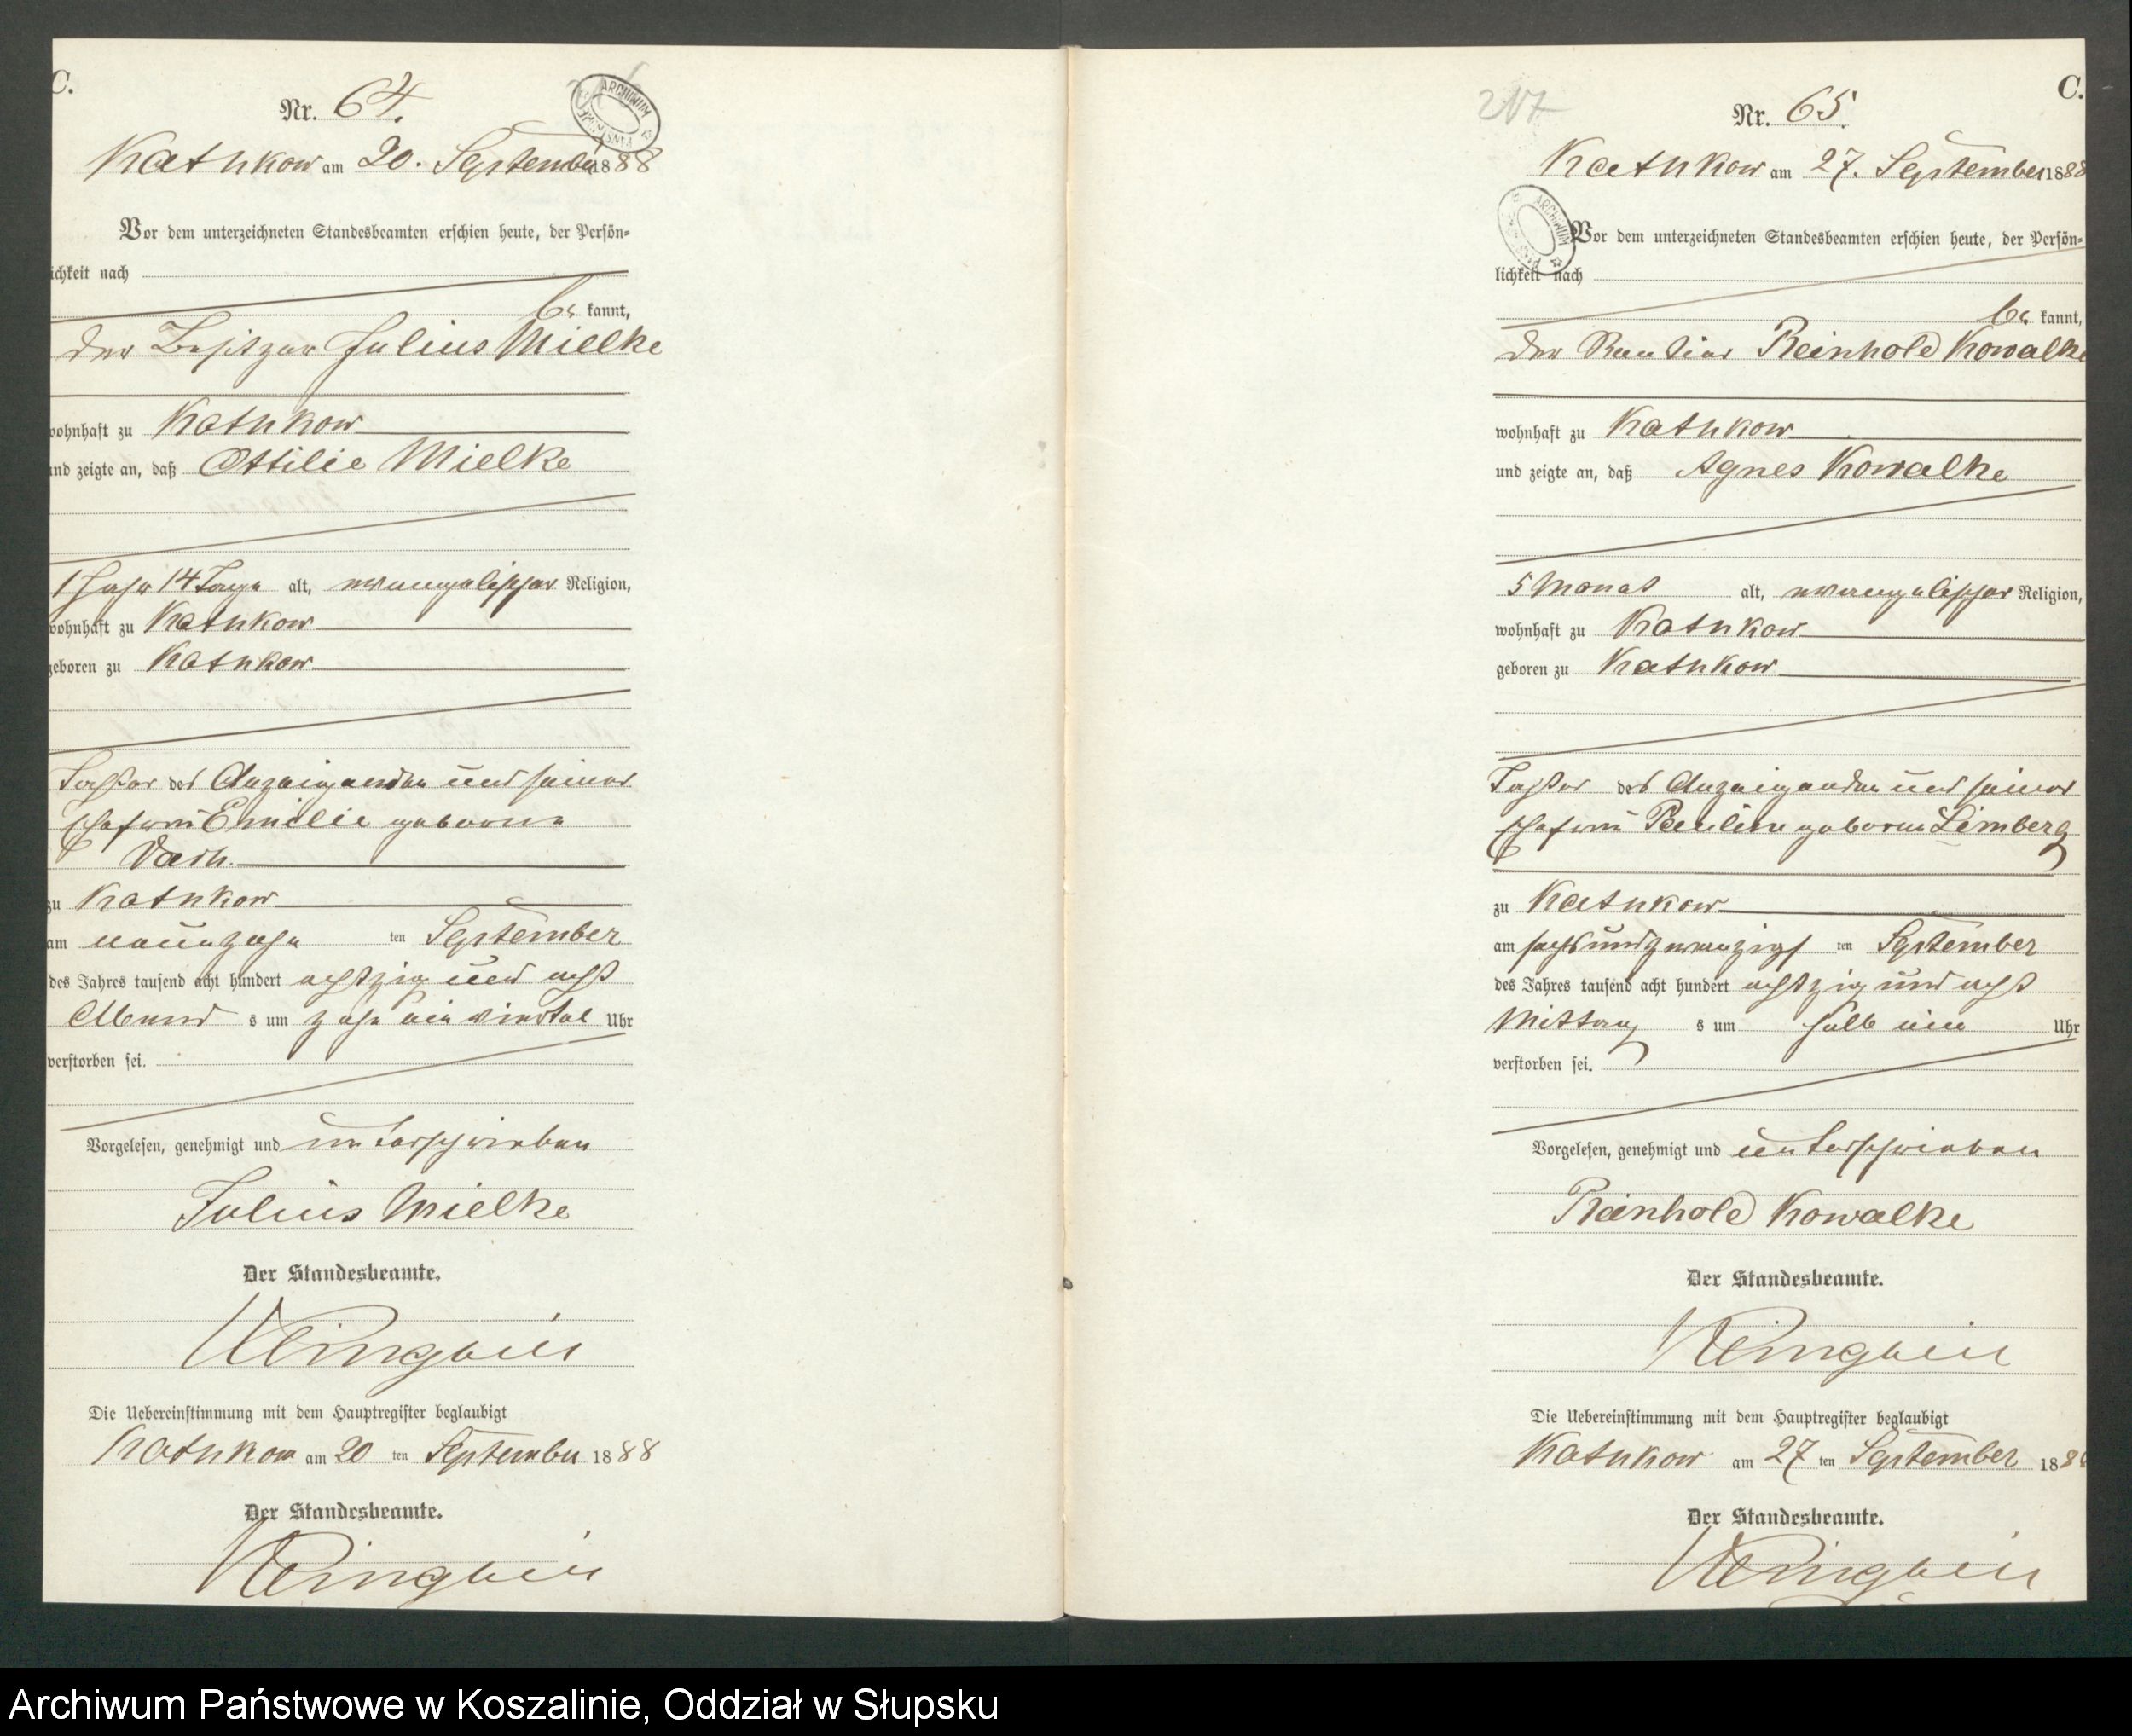 C.
Nr. 64.
Kathkow am 20. September 1888
Vor dem unterzeichneten Standesbeamten erschien heute, der Persön-
ichkeit nach
be kannt,
der Besitzer Julius Mielke
wohnhaft zu Kathkow
und zeigte an, daß Ottilie Mielke
1 Jahr 14 Tage alt, evangelischer Religion,
wohnhaft zu Kathkow
geboren zu Kathkow
Tochter des Anzeigenden und seiner
Ehefrau Emilie geborene
zu Kathkow
am neunzehn ten September
des Jahres tausend acht hundert achtzig und acht
Abend s um zehn ein viertel Uhr
verstorben sei.
Vorgelesen, genehmigt und unterschrieben
Julius Mielke
Der Standesbeamte.
Die Uebereinstimmung mit dem Hauptregister beglaubigt
Kathkow am 20 ten September 1888
Der Standesbeamte.
217
C.
Nr. 65.
Kathkow am 27. September 1888
ARCHIWUM
Vor dem unterzeichneten Standesbeamten erschien heute, der Persön-
lichkeit nach
be kannt,
der Rentier Reinhold Kowalke
wohnhaft zu Kathkow
und zeigte an, daß Agnes Kowalke
5 Monat alt, evangelischer Religion,
wohnhaft zu Kathkow
geboren zu Kathkow
Tochter des Anzeigenden und seiner
Ehefrau Pauline geborne Limberg
zu Kathkow
am sechsundzwanzigs ten September
des Jahres tausend acht hundert achtzig und acht
Mittag s um halb ein Uhr
verstorben sei.
Vorgelesen, genehmigt und unterschrieben
Reinhold Kowalke
Der Standesbeamte.
Die Uebereinstimmung mit dem Hauptregister beglaubigt
Kathkow am 27 ten September 188
Der Standesbeamte.
Archiwum Państwowe w Koszalinie, Oddział w Słupsku